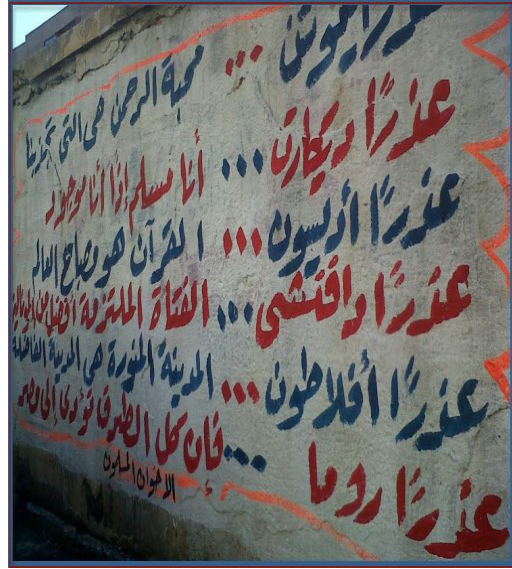 عذرًا نيوتن ... محبة الرحمن هى التى تجذبنا
عذرًا ديكارت ... أنا مسلم إذًا أنا موجود
عذرًا أديسون ... القرآن هو مصباح العالم
عذرًا دافنشى ... الفتاة الملتزمة أفضل من الموناليزا
عذرًا أفلاطون ... المدينة المنورة هى المدينة الفاضلة
عذرًا روما ... فإن كل الطرق تؤدى إلى مصر
الاخوان المسلمون